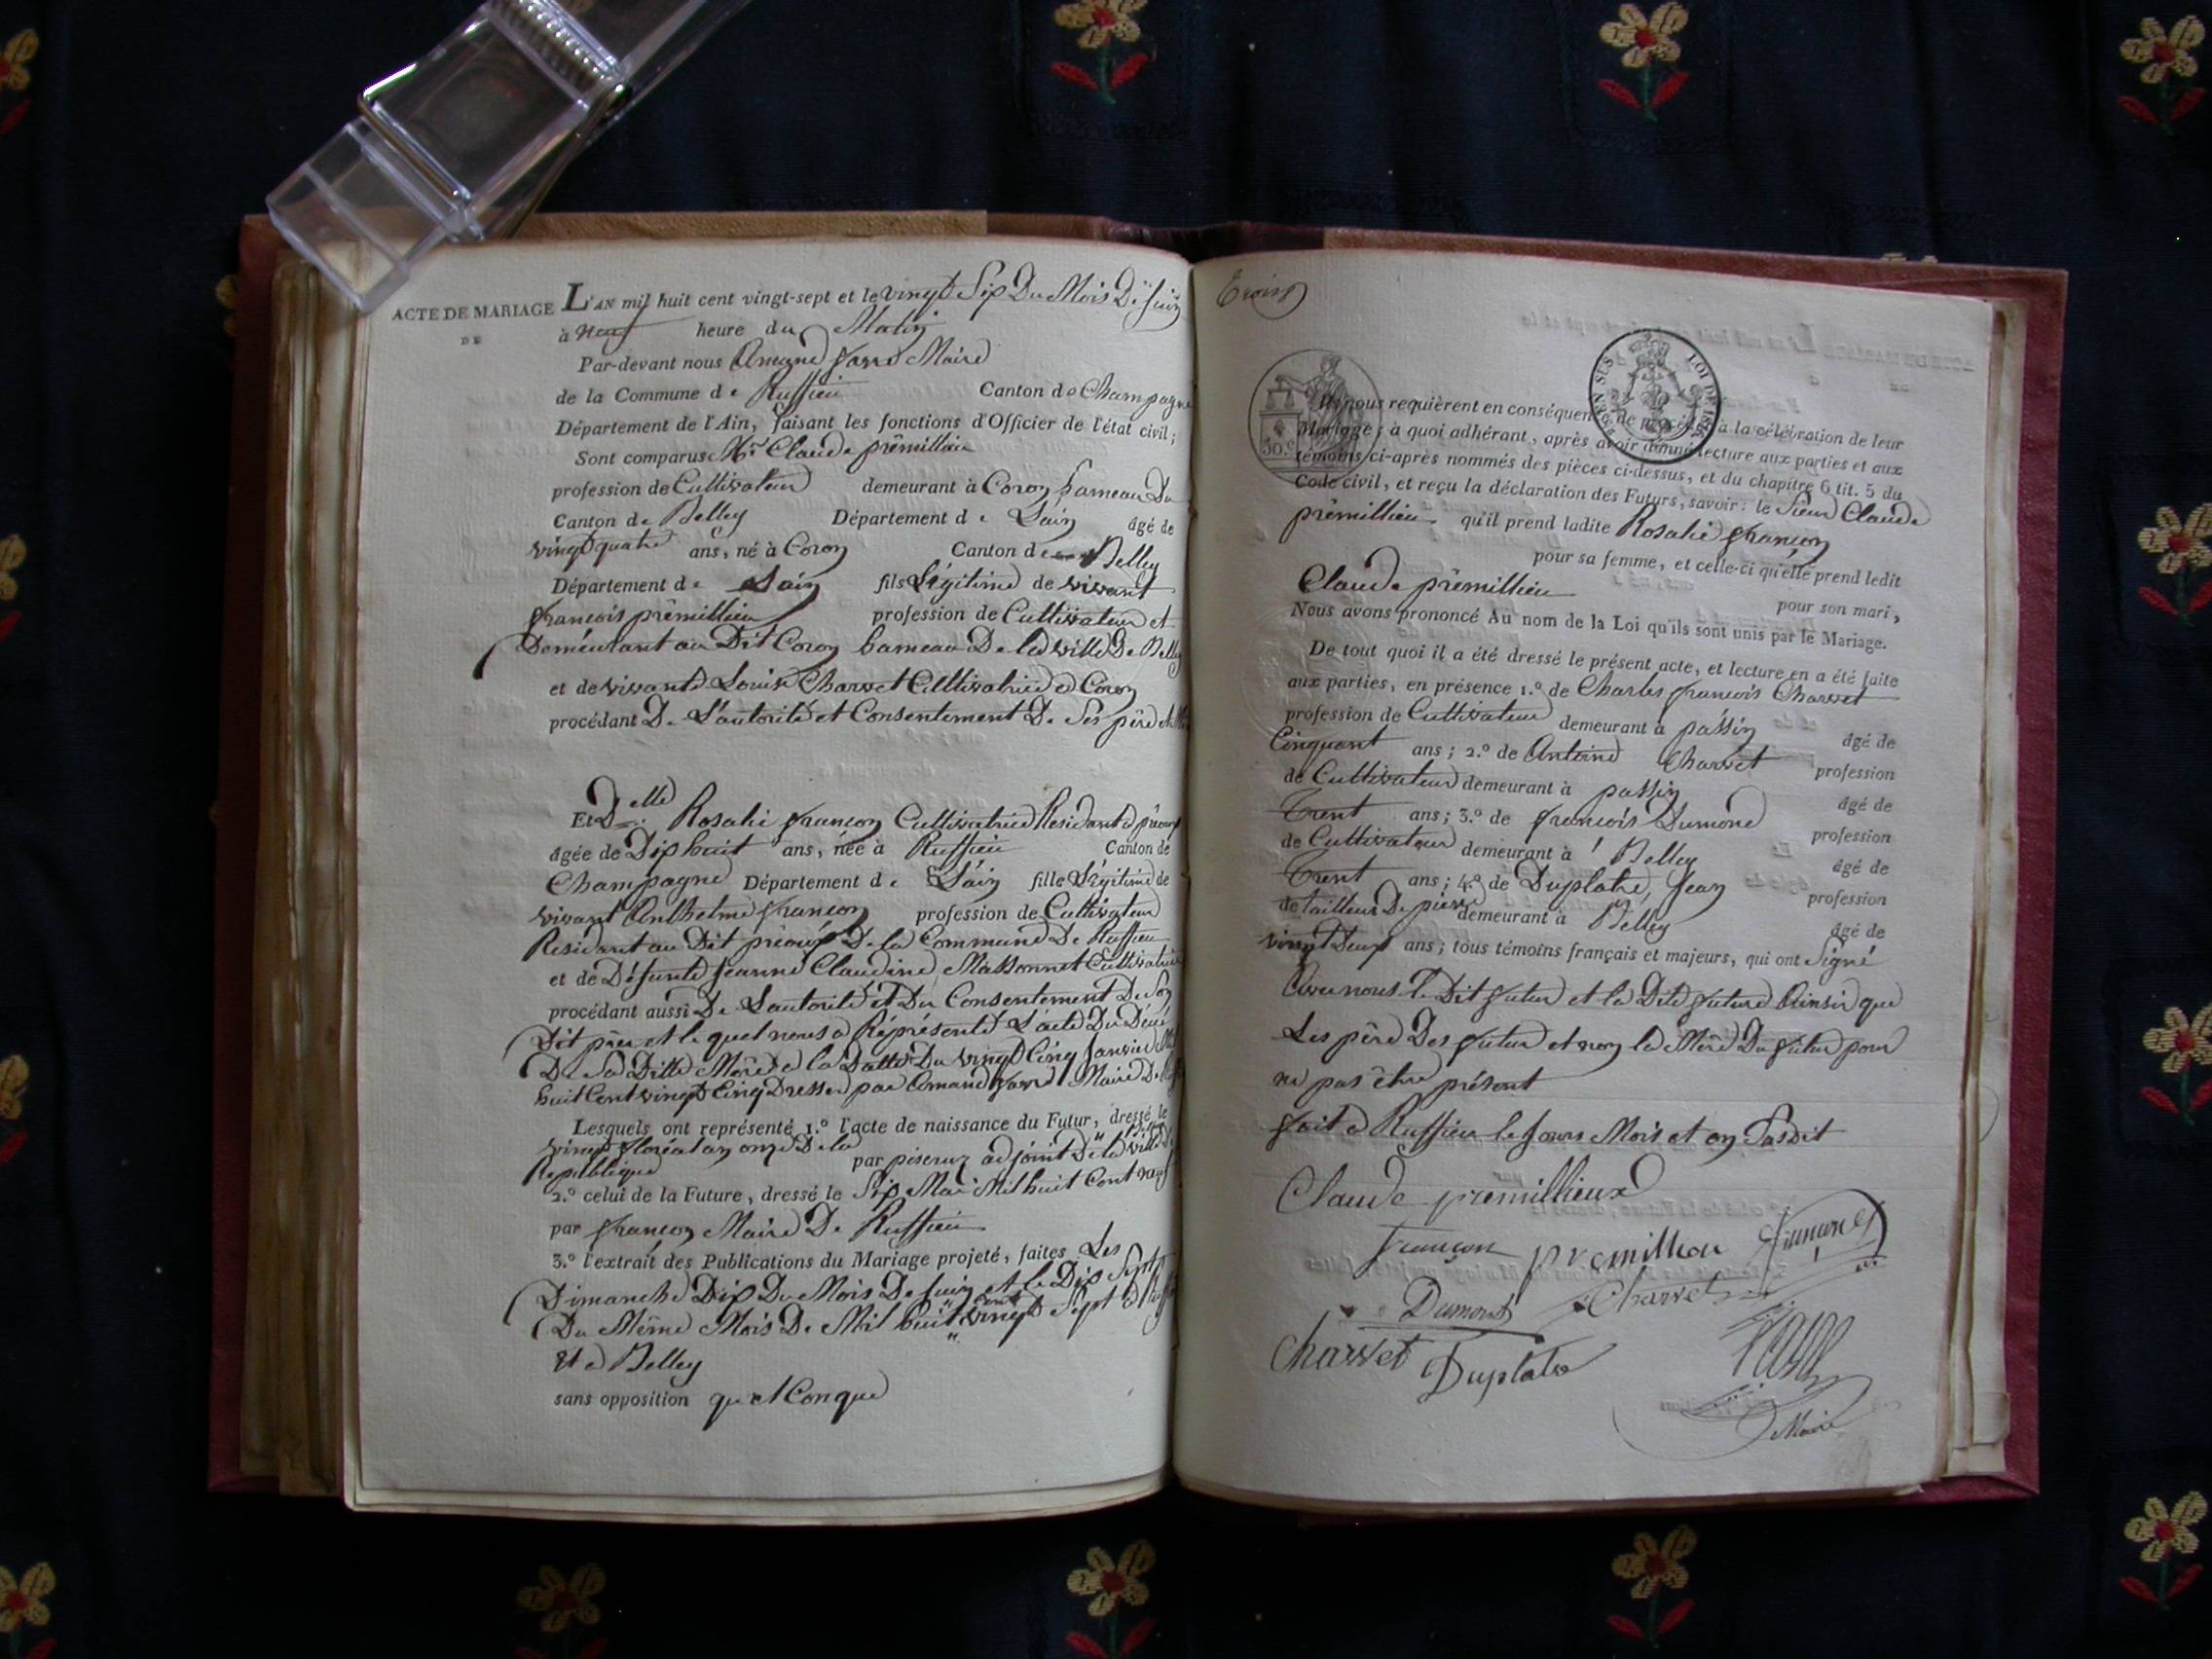 ACTE DE MARIAGE
DE
L'AN mil huit cent vingt-sept et le vingt Six Du Mois De juin
à neuf heure du Matin
Par-devant nous Amand favre Maire
de la Commune de Ruffieu Canton de Champagne
Département de l'Ain, faisant les fonctions d'Officier de l'état civil;
Sont comparus Mr Claude prémillieu
profession de Cultivateur demeurant à Coron hameau Du
Canton de Belley Département de L'ain âgé de
vingt quatre ans, né à Coron Canton de Belley
Département de L'ain fils Légitime de vivant
françois prémillieu profession de Cultivateur et
Demeurant au Dit Coron hameau De la ville De Belley
et de vivante Louise Charvet Cultivatrice à Coron
procédant De L'autorité et Consentement De Ses père et
Et Delle Rosalie françon Cultivatrice Residante
âgée de Dix huit ans, née à Ruffieu Canton de
Champagne Département de L'ain fille Légitime de
vivant Anthelme françon profession de Cultivateur
Residant au Dit De la Commune De Ruffieu
et de Défunte jeanne Claudine Massonnet Cultivatrice
procédant aussi De L'autorité et Du Consentement De Son
Dit père et le quel nous a Réprésenté L'acte Du Décé
De Sa Ditte Mère à la Datte Du vingt Cinq Janvier
huit Cent vingt Cinq Dressé par Amand favre Maire De
Lesquels ont représenté 1.º l'acte de naissance du Futur, dressé le
vingt floréal an onze De la
Republique par adjoint De la ville De
2.º celui de la Future, dressé le Six Mai Mil huit Cent neuf
par françon Maire De Ruffieu
3.º l'extrait des Publications du Mariage projeté, faites Les
Dimanche Dix Du Mois De juin et le Dix Sept
Du Même Mois De Mil huit Cent vingt Sept à
Et à Belley
sans opposition quelConque
LOI DE
30 c
Ils nous requièrent en conséquence de procéder à la célébration de leur
Mariage; à quoi adhérant, après avoir donné lecture aux parties et aux
témoins ci-après nommés des pièces ci-dessus, et du chapitre 6 tit. 5 du
Code civil, et reçu la déclaration des Futurs, savoir: le Sieur Claude
prémillieu qu'il prend ladite Rosalie françon
pour sa femme, et celle-ci qu'elle prend ledit
Claude prémillieu pour son mari,
Nous avons prononcé Au nom de la Loi qu'ils sont unis par le Mariage.
De tout quoi il a été dressé le présent acte, et lecture en a été faite
aux parties, en présence 1.º de Charles françois Charvet
profession de Cultivateur demeurant à passin âgé de
Cinquant ans; 2.º de Antoine Charvet profession
de Cultivateur demeurant à passin âgé de
Trent ans; 3.º de françois Dumond profession
de Cultivateur demeurant à Belley âgé de
Trent ans; 4.º de Duplatre, Jean profession
de tailleur De pierre demeurant à Belley âgé de
vingt Deux ans; tous témoins français et majeurs, qui ont Signé
Avec nous le Dit futur et la Dite future Ainsi que
Les père Des futur et non la Mère Du futur pour
ne pas être présent
fait à Ruffieu le Jour Mois et an Susdit
Claude premillieux
françon premillieu
Dumont Charvet
Charvet Duplatre
Maire